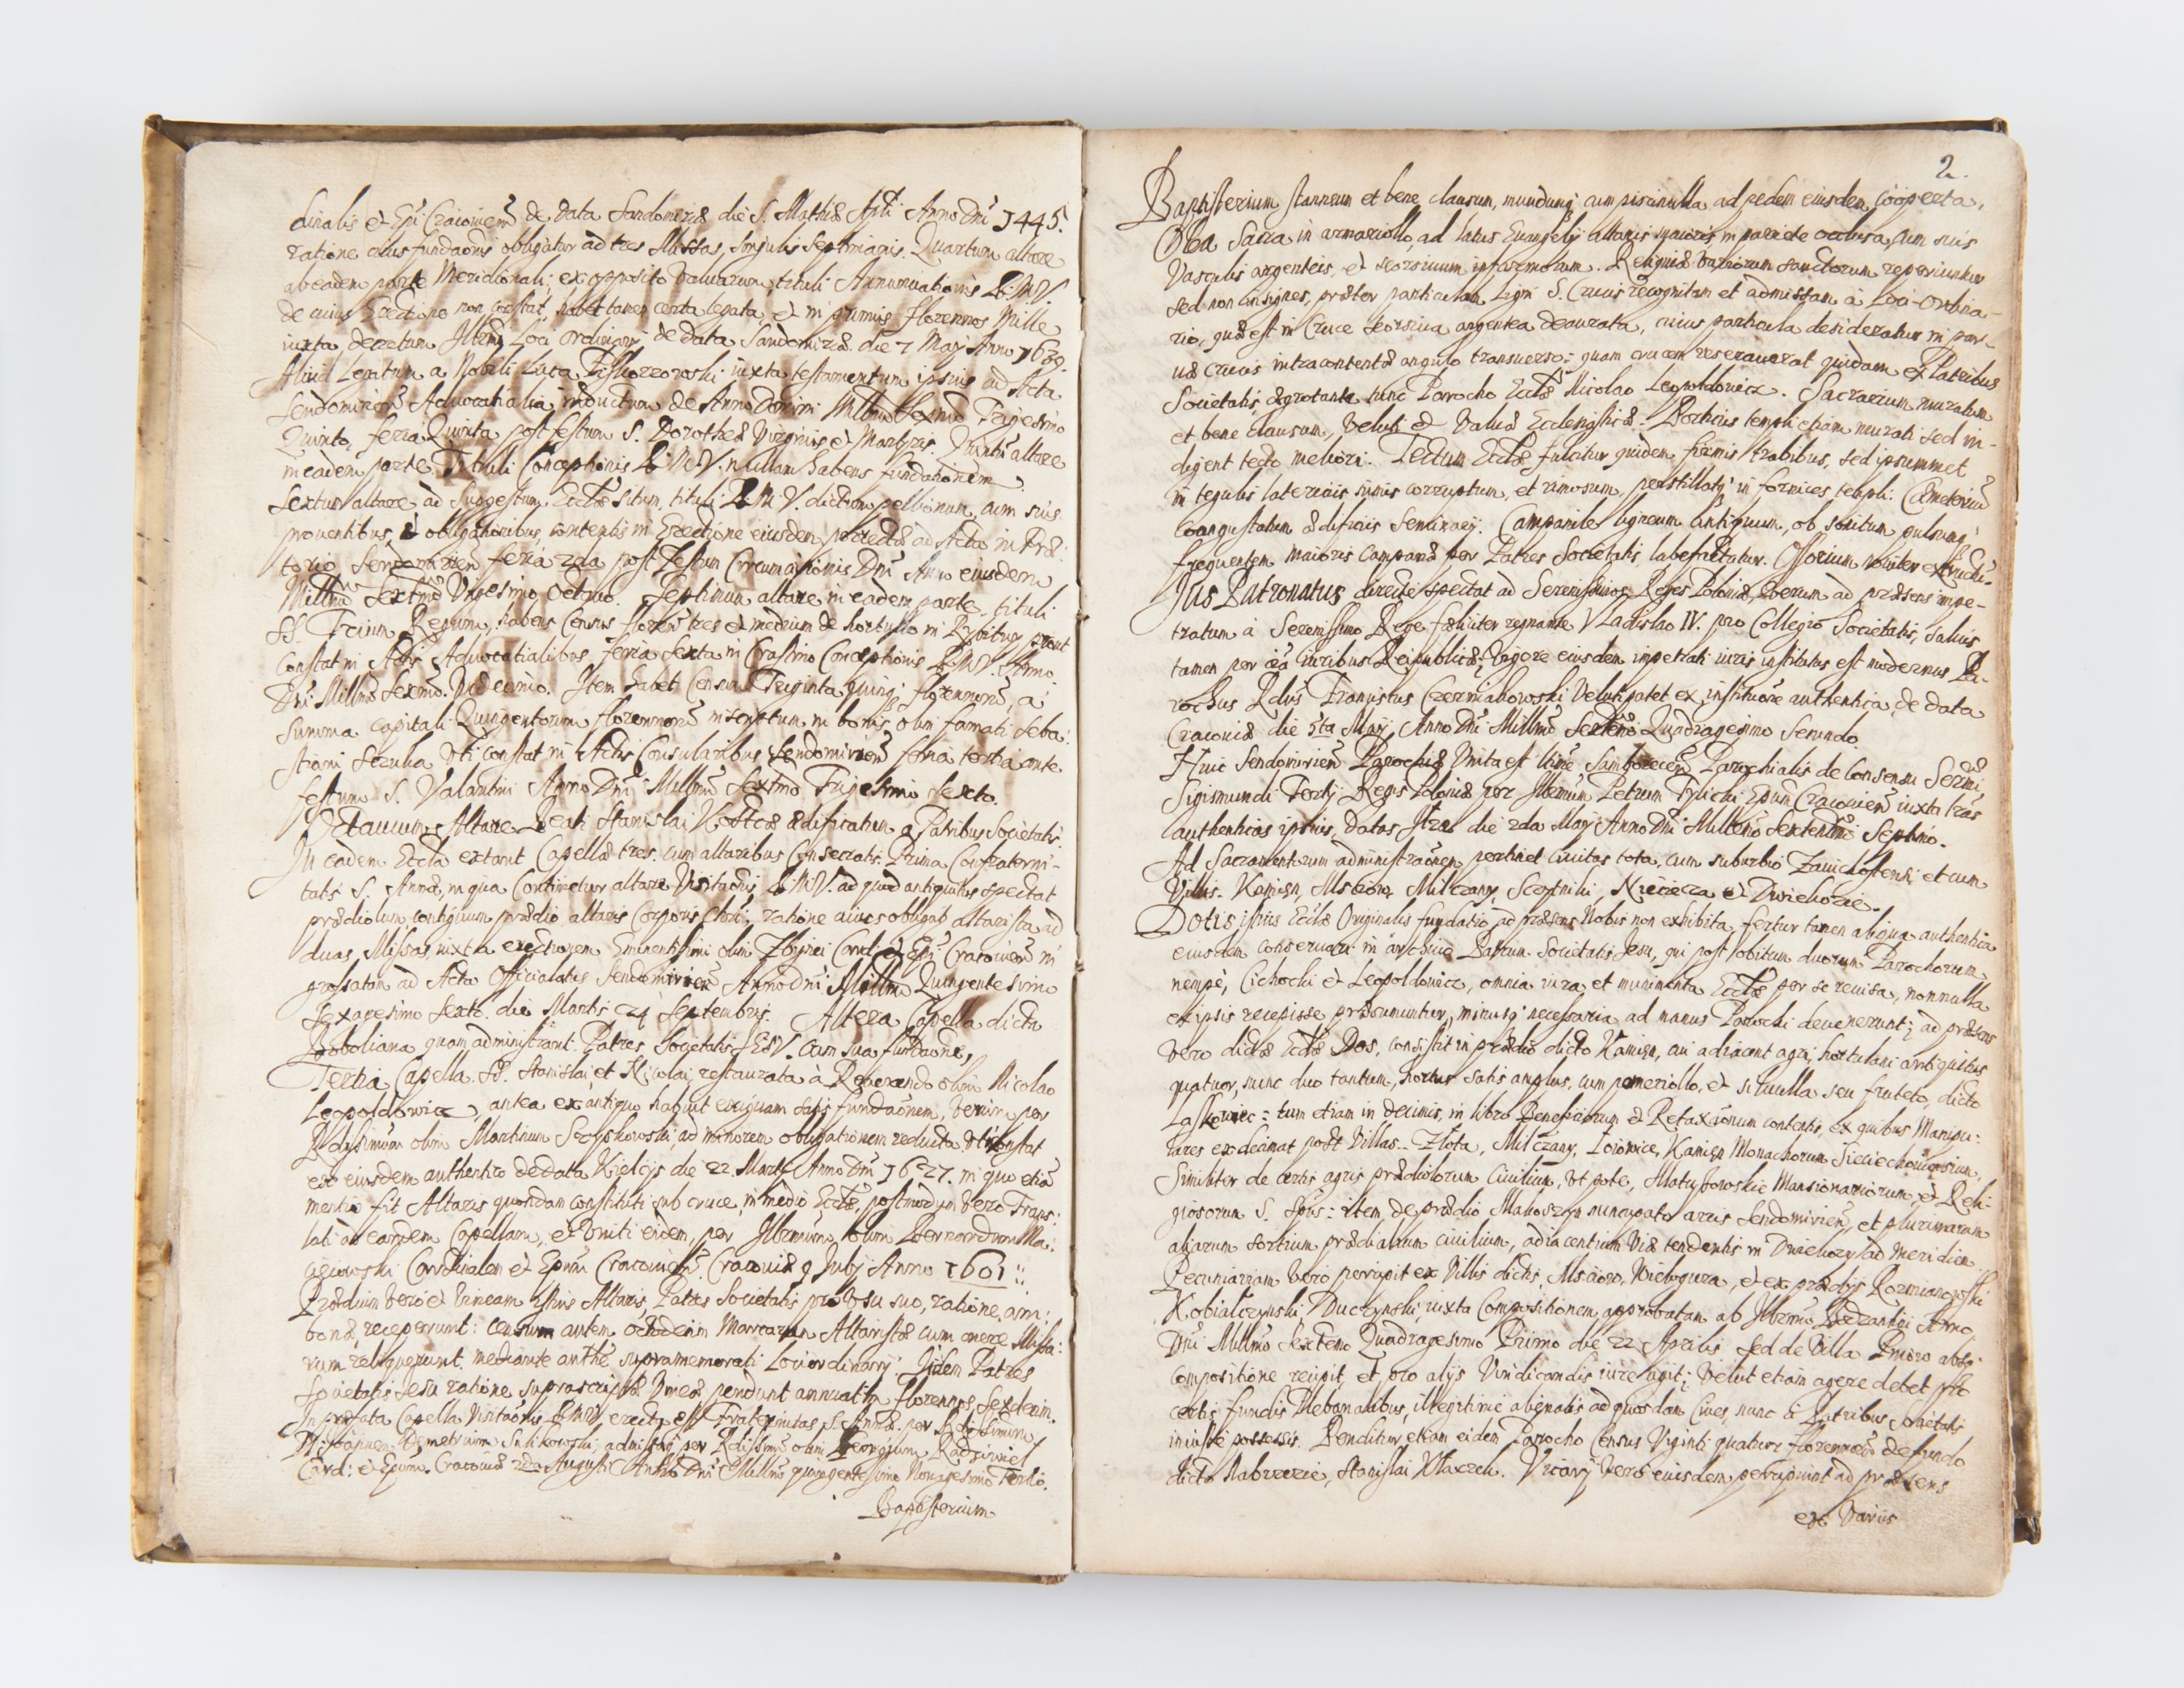 dinalis et Epi Cracovien de Data Sandomiriæ die S. Mathiæ Apli Anno Dni 1445.
ratione cuius fundaonis obligatur ad tres Missas, singulis septimanis. Quartum altare
ab eadem parte Meridionali; ex opposito valvarum, tituli Annunciationis B.M.V.
de cuius Erectione non constat, habet tamen certa legata, et in primis florenos Mille
iuxta decretum Loci Ordinarij de data Sandomiriæ die 7 Maij Anno 1639.
Aliud Legatum a Nobili Luca iuxta testamentum ipsius ad Acta
Sendomirien Advocatialia inductum de Anno Domini Millmo Sexmo Trigesimo
Quinto, feria Quinta post festum S. Dorotheæ Virginis et Martyris. Quintū altare
in eadem parte Tituli Conceptionis B.M.V. nullam habens fundationem.
Sextum altare ad Suggestum Ecclæ situm, tituli B.M.V. dictum pellionum, cum suis
proventibus, et obligationibus, contentis in Erectione eiusdem porrecta ad Acta in Præ:
torio Sendomirien feria 2da post Festum Circumcisionis Dni Anno eiusdem
Millmo Sextmo Vigesimo Octavo. Septimum altare in eadem parte, tituli
SS. Trium Regum, habens Census florenos tres et medium de hortulo in prout
Constat in Actis Advocatialibus feria Sexta in Crastino Conceptionis B.M.V. Anno
Dni Millmo Sexmo. Item habet Censum Triginta quinq florenorū, a
Summa capitali Quingentorum florenorū inscriptum in bonis olim famati Seba:
stiani uti constat in Actis Consularibus Sendomirien feria tertia ante
festum S. Valentini Anno Dni Millmo Sextmo Trigesimo Sexto.
Octavum Altare Beati Stanislai Kostcæ ædificatum a Patribus Societatis.
In eadem Eccla extant Capellæ tres cum altaribus Consecratis. Prima Confraterni-
tatis S. Annæ, in qua Continetur altare Visitaonis B.M.V. ad quod antiquitus spectat
prædiolum contiguum prædio altaris Corporis Chri; ratione cuius obligat altarista ad
duas Missas, iuxta erectionem Eminentissimi olim Zbignei Card. et Epi Cracovien in
grossatam ad Acta Officialatus Sendomirien Anno Dni Millmo Quingentesimo
Sexagesimo Sexto die Martis 24 Septembris. Altera Capella dicta
Boboliana quam administrant Patres Societatis JESV. Cum sua fundaone,
Tertia Capella SS. Stanislai, et Nicolai, restaurata à Reverendo olim Nicolao
Leopoldowicz, antea ex antiquo habuit exiguam satis fundaonem, verum per
Rdissimum olim Martinum Szyszkowski, ad minorem obligationem reducta, uti constat
ex eiusdem authentico de data Kielcijs die 22. Martij Anno Dni 1627. in quo etiā
mentio fit Altaris quondam constituti sub cruce, in medio Ecclæ, postmodum vero Trans:
lati ad eandem Capellam, et Uniti eidem, per Illmum olim Bernardum Ma:
ciejowski Cardinalem et Epum Cracovien Cracoviæ 9 Julij Anno 1601.
Prædium vero et vineam istius Altaris, Patres Societatis pro usu suo, ratione am:
bonæ, receperunt: censum autem octodecim Marcarum Altaristæ cum onere Missa:
rum reliquerunt mediante authe supramemorati Loci ordinarij. Iidem Patres
Societatis Jesu ratione suprascriptæ Vineæ pendunt annuatim florenos Sexdecim.
In præfata Capella Visitaonis B.M.V. erecta est Fraternitas S. Annæ per Rdissimum
Joannem Demetrium Sulikowski, admissa per Rdissimū olim Georgium Radziwiel
Card: et Epum Cracoviæ 2da Augusti Anno Dni Millmo quingentesimo Nonagesimo Tertio.
Baptisterium
2.
Baptisterium stanneum et bene clausum, mundumq cum piscinulla ad pedem eiusdem cooperta,
Olea Sacra in armariollo, ad latus Evangelij altaris maioris in pariete occlusa, cum suis
vasculis argenteis, et seorsivum infirmorum. Reliquiæ variorum sanctorum reperiuntur
sed non insignes, præter particulam Ligni S. Crucis recognitam et admissam à Loci-Ordina-
rio, quæ est in Cruce seorsiva argentea deaurata, cuius particula desideratur in par-
væ crucis intra contentæ angulo transverso: quam crucem reseraverat quidam ex Patribus
Societatis, ægrotante tunc Parocho Ecclæ Nicolao Leopoldowicz. Sacrarium muratum
et bene clausum, veluti et valvæ Ecclesiasticæ. Porticus templi etiam murati sed in-
digent tecto meliori. Tectum Ecclæ fulcitur quidem firmis trabibus, sed ipsummet
in tegulis latericijs nimis corruptum, et rimosum, perstillatq in fornices templi. Cæmeteriū
Coangustatum ædificijs Seminarij. Campanile ligneum antiquum, ob sonitum pulsumq
frequentem maioris Campanæ per Patres Societatis labefactatur. Ossorium noviter extructū.
Jus Patronatus directe spectat ad Serenissimos Reges Poloniæ, verum ad præsens impe-
tratum à Serenissimo Rege fæliciter regnante Vladislao IV. pro Collegio Societatis, salvis
tamen per oia iuribus Reipublicæ; vigore eiusdem impetrati iuris institutus est modernus Pa-
rochus Rdus Franciscus Czerniakowski veluti patet ex institutione authentica, de data
Cracoviæ die 5ta Maij Anno Dni Millmo Sextmo Quadragesimo Secundo.
Huic Sendomirien Parochiæ Unita est Parochialis de Consensu Sermi
Sigismundi Tertij Regis Poloniæ per Illmum Petrum Tylicki Epum Cracovien iuxta lras
authenticas ipsius, datas die 2da Maij Anno Dni Millmo Sextentmo Septimo.
Ad Sacramentorum administraonem pertinet Civitas tota, cum suburbio Zawichostensi et cum
Villis. Kamień, Mściow, Milczany, Szczytniki, Nieciecza et Dwiekozie.
Dotis ipsius Ecclæ Originalis fundatio, ad præsens Nobis non exhibita, fertur tamen aliqua authentica
eiusdem conservari in archivio Patrum Societatis Jesu, qui post obitum duorum Parochorum
nempè, Cichocki et Leopoldowicz, omnia iura et munimenta Ecclæ per se revisa, nonnulla
ex ipsis recepisse præsumuntur, minusq necessaria ad manus Parochi devenerunt; ad præsens
vero dictæ Ecclæ Dos, consistit in prædio dicto Kamień, cui adiacent agri, hortulani antiquitus
quatuor, nunc duo tantum, hortus satis amplus, cum pomeriollo, et silvulla seu fruteto, dicto
tum etiam in decimis, in libro Beneficiorum et Retaxaonum contentis, ex quibus Manipu:
lares ex decimat post Villas Złota, Milczany, Kamień Monachorum Sieciechoviensium,
Similiter de certis agris prædiolorum Civilium, ut pote, Mansionariorum, et Reli-
giosorum S. Spus: item de prædio nuncupato arcis Sendomirien, et plurimarum
aliarum sortium prædialium civilium, adiacentium viæ tendentis in Dwiekozy ad Meridiem.
Pecuniariam vero percipit ex Villis dictis Mściow, Wielogura, et ex prædijs
iuxta Compositionem approbatam ab Illrmo Anno
Dni Millmo Sextmo Quadragesimo Primo die 22 Aprilis Sed de Villa absq
compositione recipit, et pro alijs Vindicandis iure agit; Velut etiam agere debet pro
certis fundis Plebanalibus, illegitime abienatis ad quosdam Cives, nunc à Patribus Societatis
iniuste possessis. Penditur etiam eidem Parocho Census Viginti quatuor florenorū de fundo
dicto Stanislai. Vicarij vero eiusdem percipiunt ad præsens
ex varijs